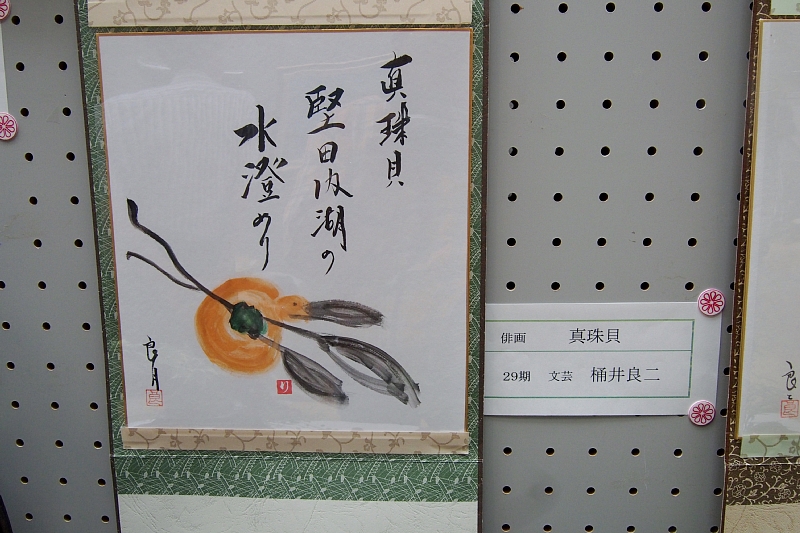 真珠貝
堅田内湖の
水澄めり
良月
俳画 真珠貝
29期 文芸 桶井良二